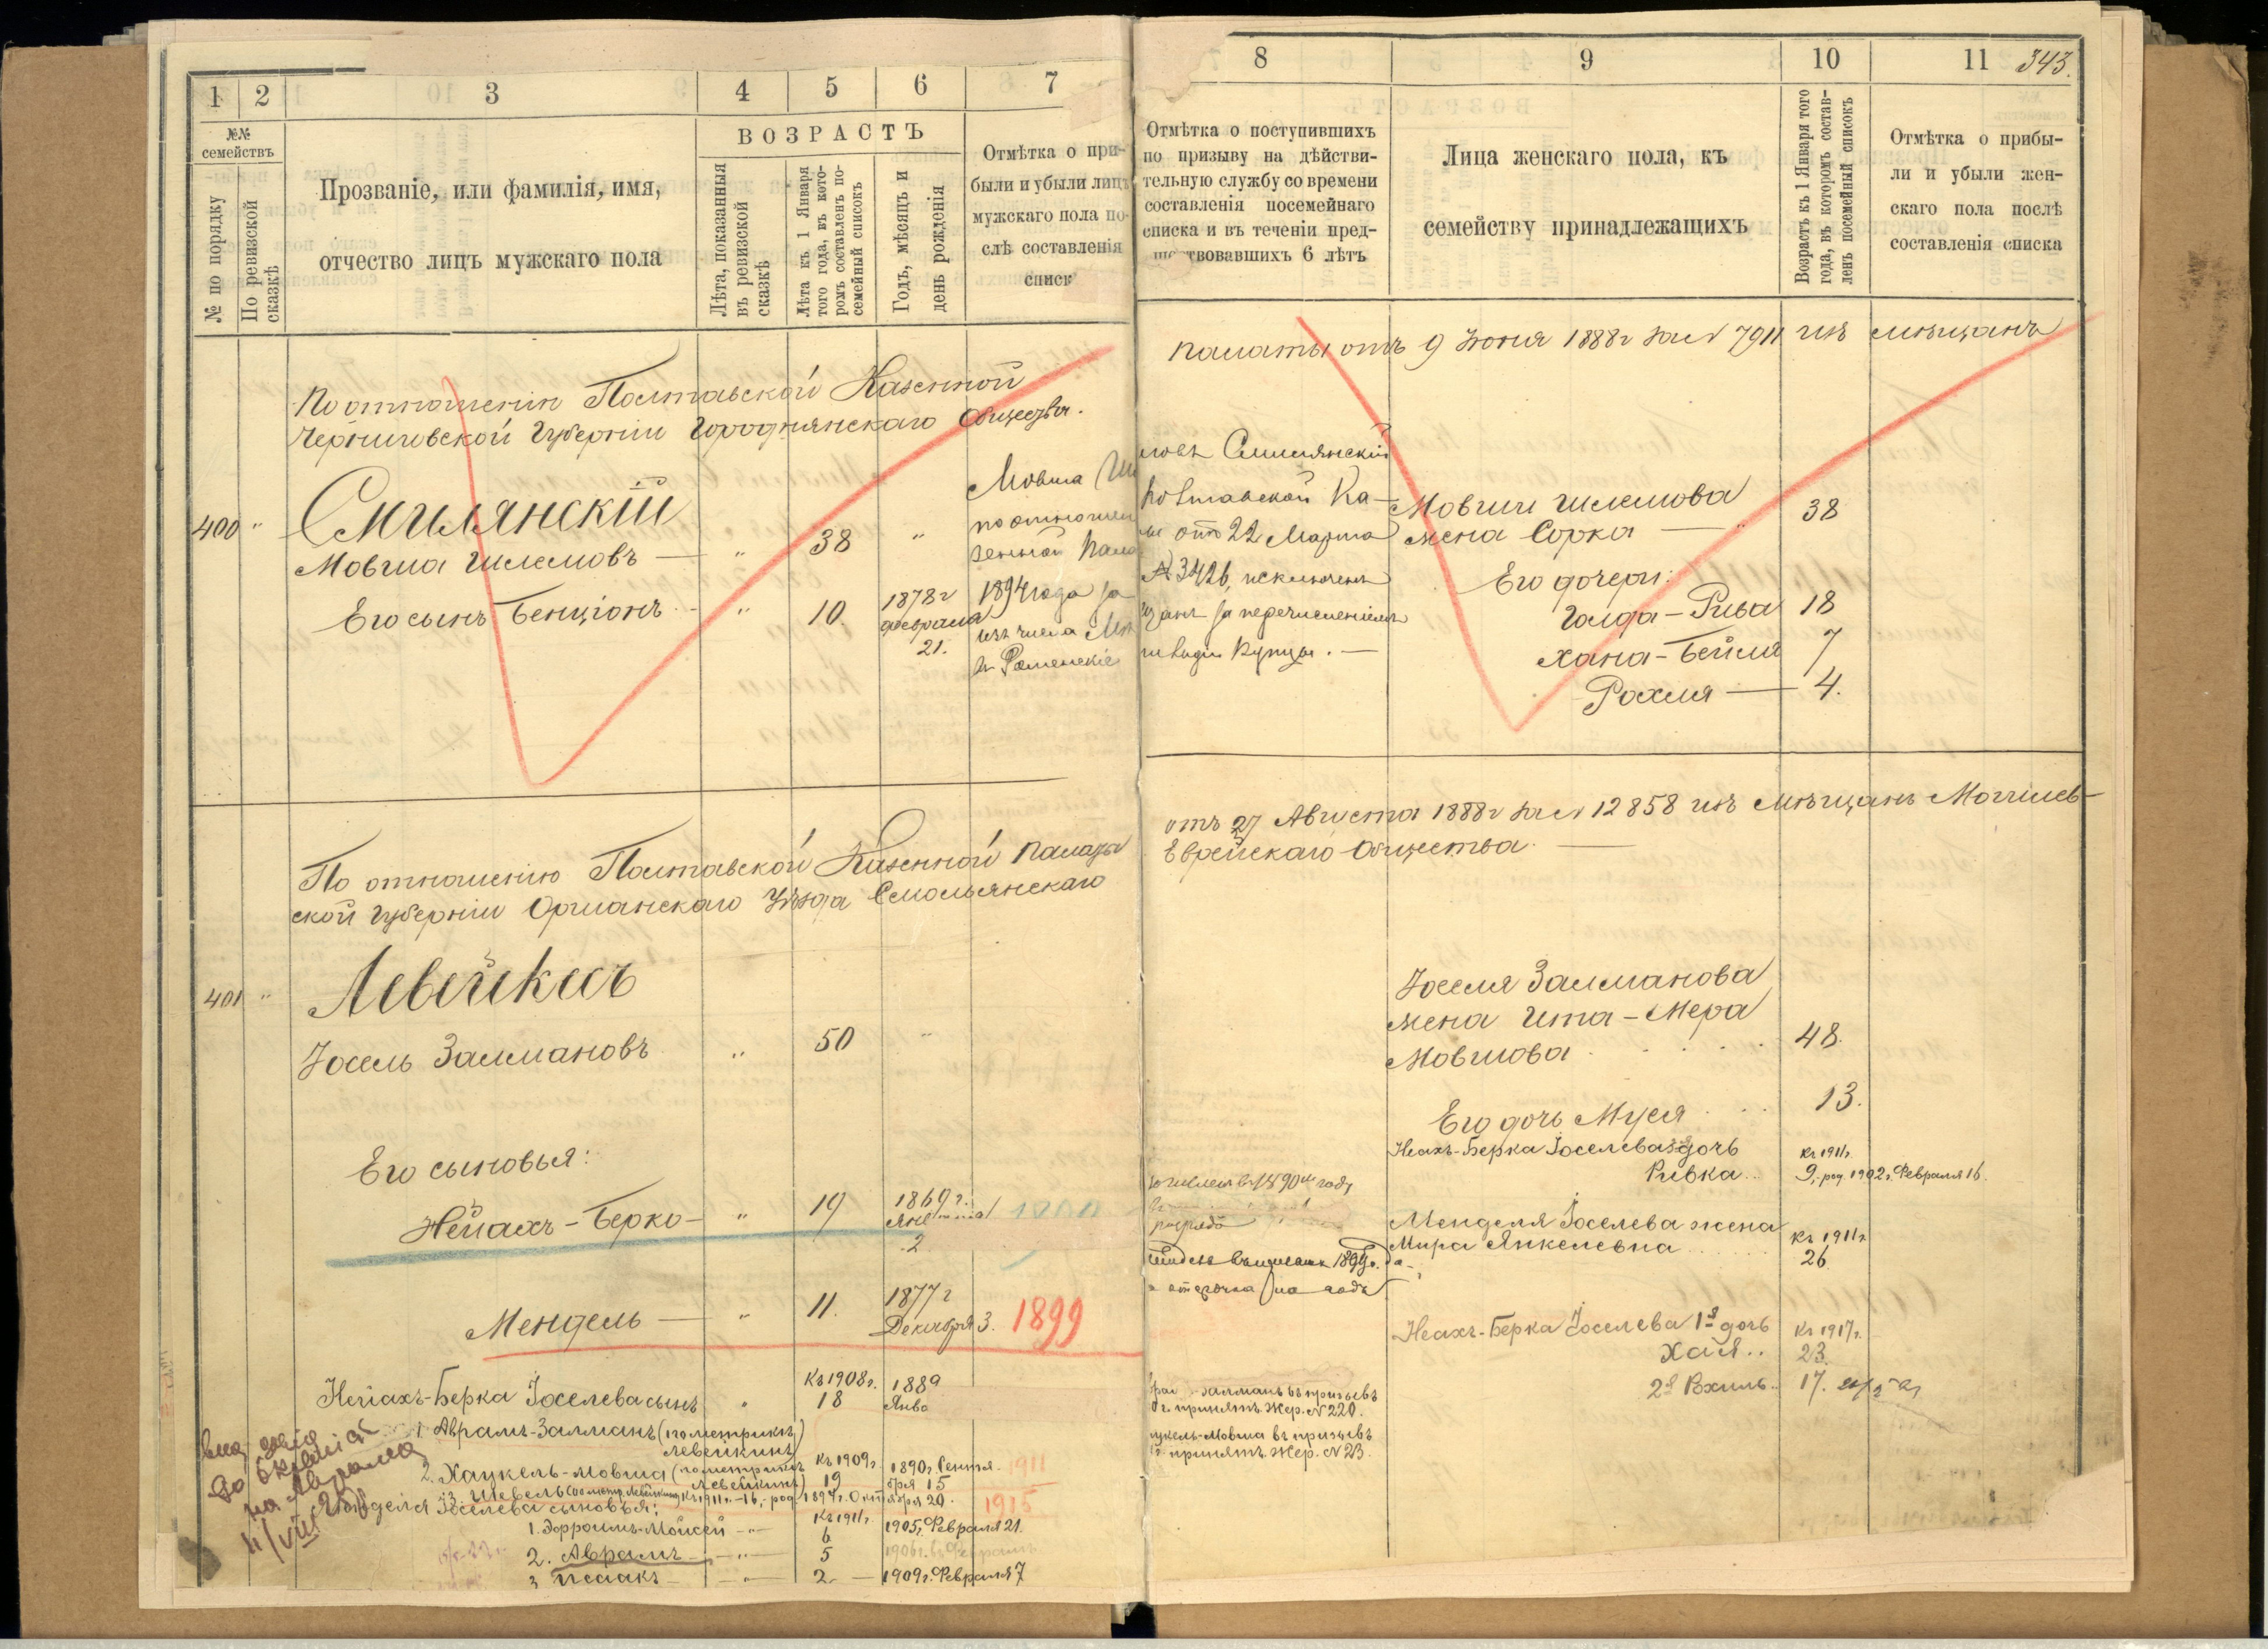 1 2 3 4 5 6 7
№№ семействъ
№ по порядку
По ревизской сказкѣ
Прозваніе, или фамилія, имя,
отчество лицъ мужскаго пола
ВОЗРАСТЪ
Лѣта, показанныя
въ ревизской
сказкѣ
Лѣта къ 1 Января
того года, въ кото-
ромъ составленъ по-
семейный списокъ
Годъ, мѣсяцъ и
день рожденія
Отмѣтка о при-
были и убыли лицъ
мужскаго пола по-
слѣ составленія
списк
8 9 10 11 343.
Отмѣтка о поступившихъ
по призыву на дѣйстви-
тельную службу со времени
составленія посемейнаго
списка и въ теченіи пред-
ше твовавшихъ 6 лѣтъ
Лица женскаго пола, къ
семейству принадлежащихъ
Возрастъ къ 1 Января того
года, въ которомъ состав-
ленъ посемейный списокъ
Отмѣтка о прибы-
ли и убыли жен-
скаго пола послѣ
составленія списка
По отношенію Полтавской Казенной
Палаты отъ 9 Іюня 1888 г за № 7911 изъ мѣщанъ
Черниговской Губерніи Городнянскаго Общества.
400 " Смилянскій
Мовша Шлемовъ — " 38 "
Его сынъ Бенціонъ - " 10. 1878 г
февраля
21.
Мовша Ш
по отношен
зенной Пала
1894 года за
изъ числа Мѣ
въ Роменскіе
мовъ Смилянскій
Полтавской Ка-
ты отъ 22 Марта
№ 3426, исключенъ
щанъ за перечисленіемъ
купцы. —
Мовши Шлемова
жена Сорка — " 38
Его дочери:
Голда-Рива 18
Хана-Бейля 7
Рохля — 4.
По отношенію Полтавской Казенной Палаты
отъ 27 Августа 1888 г за № 12858 изъ мѣщанъ Могилев-
ской Губерніи Оршанскаго Уѣзда Смольянскаго
Еврейскаго Общества. —
401 " Левейкисъ
Іосель Залмановъ " 50 "
Его сыновья:
Нейахъ-Берко - " 19 1869 г.
2
Мендель — " 11. 1877 г
Декабря 3. 1899
Нейахъ-Берка Іоселева сынъ " Къ 1908 г. 18 1889
Янв
1. Абрамъ-Залманъ (по метрикѣ)
Левейкинъ
2. Хацкель-Мовша (по метрикѣ Левейкинъ) Къ 1909 г. 19 1890 г. Сентя-
бря 15 1911
3. Шевель Къ 1911 г. - 16, - род. Октября 20. 1915
Менделя Іоселева сыновья:
1. Эфроимъ-Мойсей - " - Къ 1911 г. 6 1905 г. Февраля 21.
2. Абрамъ - " - 5 1906 г.
3 Исаакъ - " - 2 - 1909 г. Февраля 7
на Абрама
11/VIII
Іоселя Залманова
жена Ита-Мера
Мовшова . . . . . 48.
Его дочь Муся . . . 13.
Неахъ-Берка Іоселева дочь Къ 1911 г.
Ривка.. 9, род. 1902 г. Февраля 16.
Менделя Іоселева жена
Мира Янкелевна . . . . Къ 1911 г.
26
отсрочка на годъ
Неахъ-Берка Іоселева 1я дочь Къ 1917 г.
Хая.. 23.
2я Рахиль.. 17.
Залманъ въ призывъ
г. принятъ. Жер. № 220.
цкель-Мовша въ призывъ
г. принятъ. Жер. № 23.